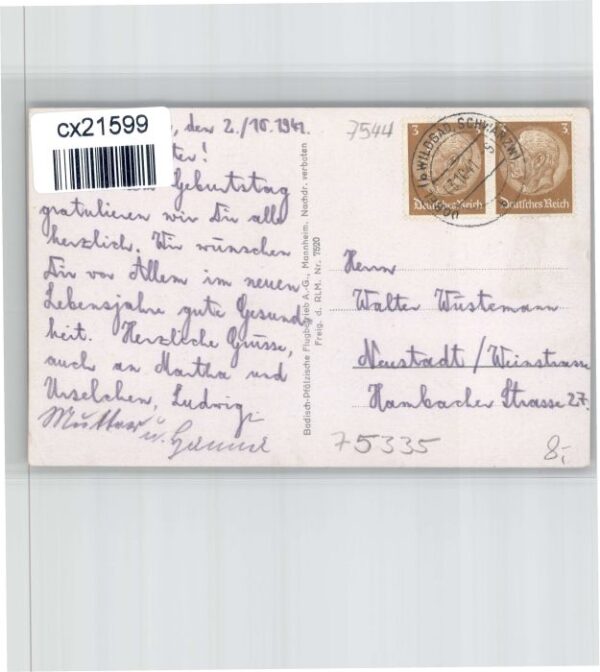 cx21599
, den 2./10. 1941.
ter!
Geburtstag
gratulieren wir Dir alle
herzlich. Wir wünschen
Dir vor Allem im neuen
Lebensjahre gute Gesund
heit. Herzliche Grüsse,
auch an Martha und
Urselchen, Ludwig
Mutter u.
Badisch-Pfälzische Flugbetrieb A.-G., Mannheim. Nachdr. verboten
Freig. d. RLM. Nr. 7520
7544
3
Deutsches Reich
3
Deutsches Reich
WILDBAD, SCHWARZW
Herrn
Walter Wüstemann
Neustadt / Weinstrasse
Hambacher Strasse 27.
75335
8,-